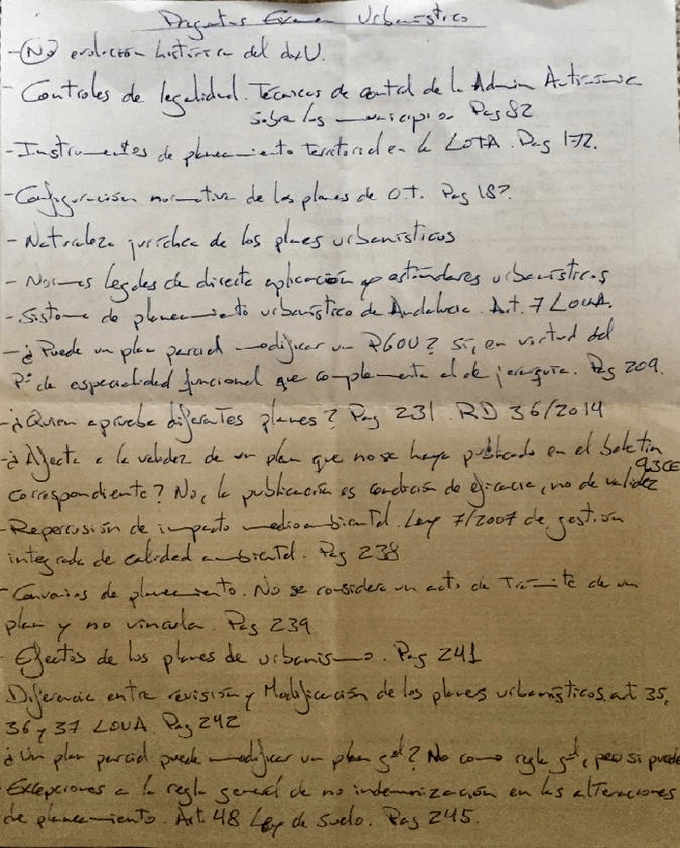 Preguntas Examen Urbanístico
- (No) evolución histórica del der U.
- Controles de legalidad. Técnicas de control de la Admin Autonómica
sobre los municipios Pag 82
- Instrumentos de planeamiento territorial en la LOTA. Pag 172.
- Configuración normativa de los planes de O.T. Pag 187.
- Naturaleza jurídica de los planes urbanísticos
- Normas legales de directa aplicación y estándares urbanísticos
- Sistema de planeamiento urbanístico de Andalucía. Art. 7 LOUA.
- ¿Puede un plan parcial modificar un PGOU? Sí, en virtud del
Pº de especialidad funcional que complementa el de jerarquía. Pag 209.
- ¿Quien aprueba diferentes planes? Pag 231. RD 36/2014
- ¿Afecta a la validez de un plan que no se haya publicado en el boletín
correspondiente? No, la publicación es condición de eficacia, no de validez 9.3 CE
- Repercusión de impacto medioambiental. Ley 7/2007 de gestión
integrada de calidad ambiental. Pag 238
- Convenios de planeamiento. No se considera un acto de Trámite de un
plan y no vincula. Pag 239
- Efectos de los planes de urbanismo. Pag 241
Diferencia entre revisión y Modificación de los planes urbanísticos. art 35,
36 y 37 LOUA. Pag 242
¿Un plan parcial puede modificar un plan gral? No como regla gral, pero si puede
- Excepciones a la regla general de no indemnización en las alteraciones
de planeamiento. Art. 48 Ley de Suelo. Pag 245.